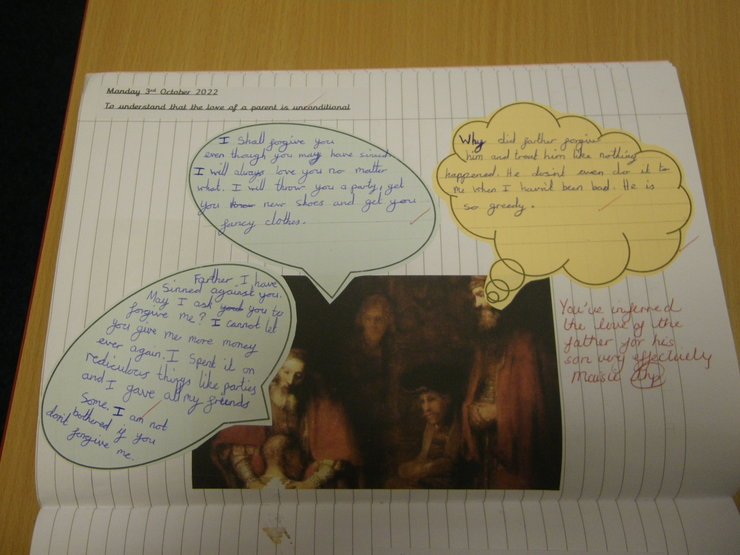 Monday 3rd October 2022
To understand that the love of a parent is unconditional
I Shall forgive you
even though you may have sinned
I will always love you no matter
what. I will throw you a party, get
you new shoes and get you
fancy clothes.
Why did farther forgive
him and treat him like nothing
happened. He dosint even do it to
me when I havint been bad. He is
so greedy.
Farther, I have
Sinned against you.
May I ask you to
forgive me? I cannot let
you give me more money
ever again. I Spent it on
rediculous things like parties
and I gave all my friends
Some. I am not
bothered if you
dont forgive me.
You've inferred
the love of the
father for his
son very effectively
Maisie